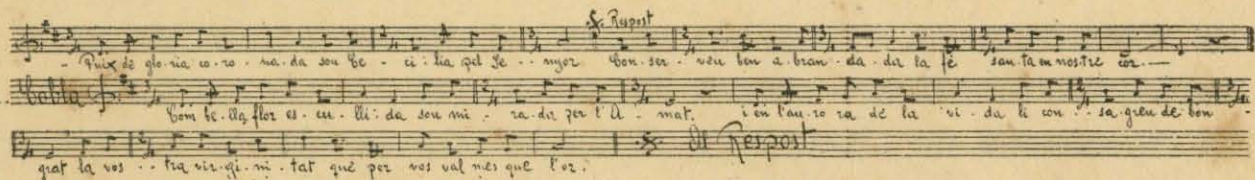 Respost
Puix de glo-ria co-ro-na-da sou Ce-ci-lia pel Se-nyor Con-ser-veu ben a-bran-da-da la fè san-ta en nos-tre cor.
Cobla
Com be-lla flor es-cu-lli-da sou mi-ra-da per l'A-mat, i en l'au-ro-ra de la vi-da li con-sa-greu de bon
grat la vos-tra vir-gi-ni-tat que per vos val mes que l'or.
al Respost